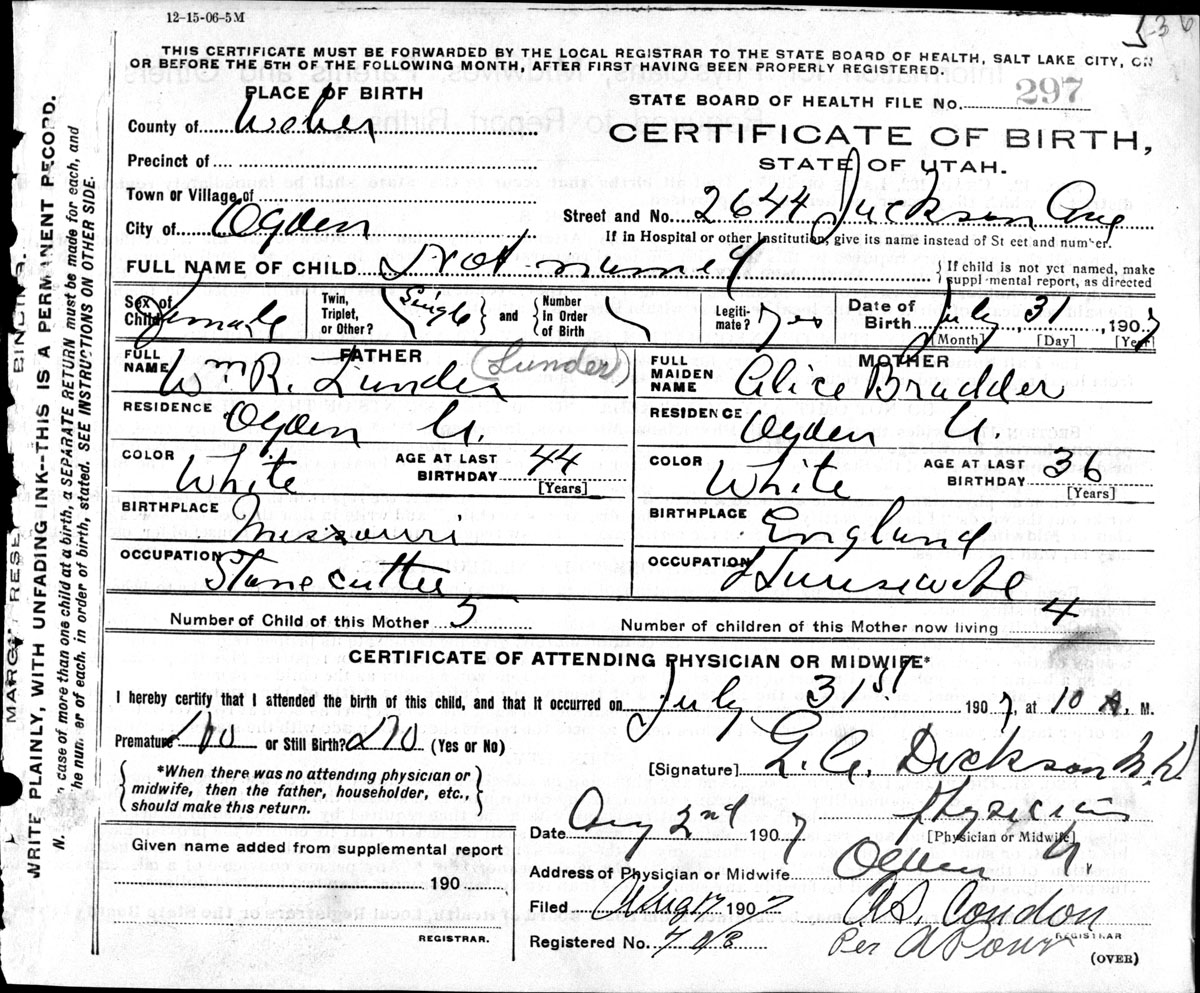 12-15-06-5M
5-36
THIS CERTIFICATE MUST BE FORWARDED BY THE LOCAL REGISTRAR TO THE STATE BOARD OF HEALTH, SALT LAKE CITY, ON
OR BEFORE THE 5TH OF THE FOLLOWING MONTH, AFTER FIRST HAVING BEEN PROPERLY REGISTERED.
PLACE OF BIRTH
STATE BOARD OF HEALTH FILE No. 297
County of Weber
CERTIFICATE OF BIRTH,
Precinct of
STATE OF UTAH.
Town or Village of
Street and No. 2644 Jackson Ave
City of Ogden
If in Hospital or other Institution, give its name instead of St eet and number.
FULL NAME OF CHILD Not named
If child is not yet named, make suppl mental report, as directed
Sex of Child Female
Twin, Triplet, or Other? Single and Number in Order of Birth
Legitimate? Yes
Date of Birth July, 31, 1907
[Month] [Day] [Year]
FATHER
FULL NAME Wm R. Lunder (Lunder)
MOTHER
FULL MAIDEN NAME Alice Bradder
RESIDENCE Ogden U.
RESIDENCE Ogden U.
COLOR White AGE AT LAST BIRTHDAY 44 [Years]
COLOR White AGE AT LAST BIRTHDAY 36 [Years]
BIRTHPLACE Missouri
BIRTHPLACE England
OCCUPATION Stone cutter
OCCUPATION Housewife
Number of Child of this Mother 5
Number of children of this Mother now living 4
CERTIFICATE OF ATTENDING PHYSICIAN OR MIDWIFE*
I hereby certify that I attended the birth of this child, and that it occurred on July 31st 1907, at 10 A. M.
Premature No or Still Birth? No (Yes or No)
*When there was no attending physician or
midwife, then the father, householder, etc.,
should make this return.
[Signature] Dickson M.D.
Physician
[Physician or Midwife]
Date Aug 2nd 1907
Given name added from supplemental report
190
REGISTRAR.
Address of Physician or Midwife Ogden U.
Filed Aug 1907 A.S. Condon
REGISTRAR
Registered No.
Per
(OVER)
MARGIN RESE BINDING.
WRITE PLAINLY, WITH UNFADING INK--THIS IS A PERMANENT RECORD.
N. case of more than one child at a birth, a SEPARATE RETURN must be made for each, and
he num er of each, in order of birth, stated. SEE INSTRUCTIONS ON OTHER SIDE.